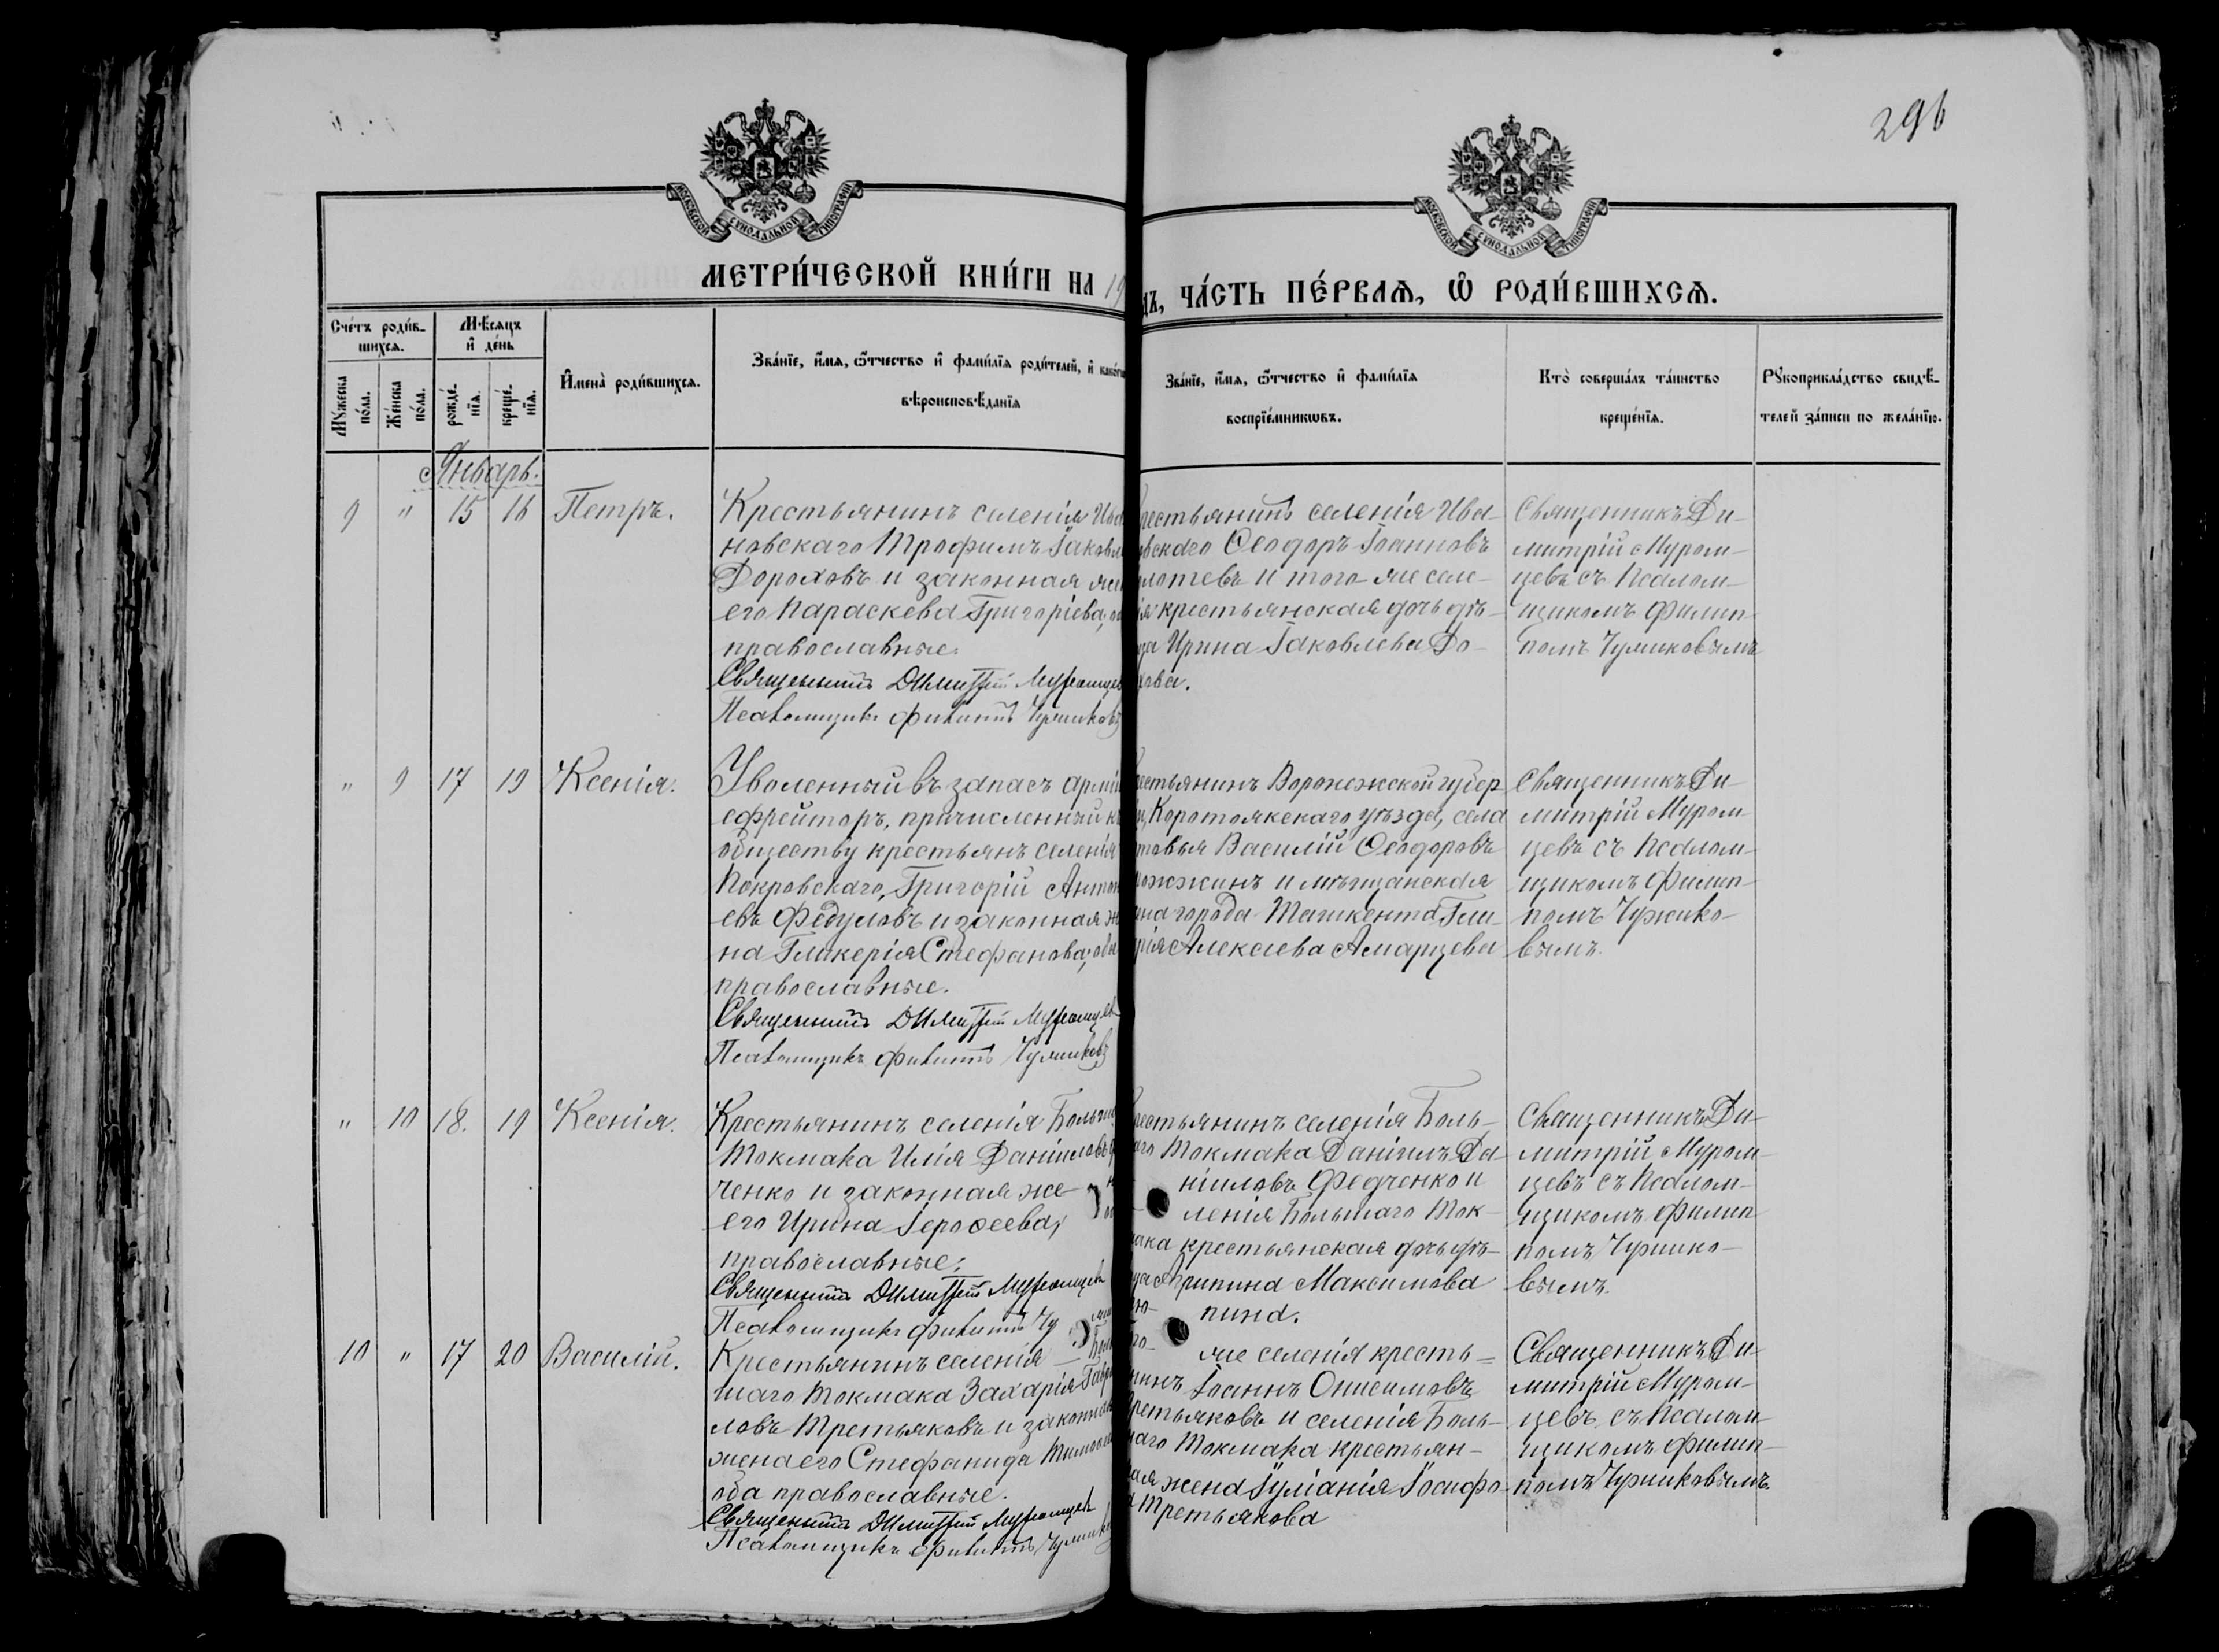 296
МОСКОВСКОЙ СѴНОДАЛЬНОЙ ТИПОГРАФІИ
МОСКОВСКОЙ СѴНОДАЛЬНОЙ ТИПОГРАФІИ
МЕТРИ́ЧЕСКОЙ КНИ́ГИ НА 19
ДЪ, ЧА́СТЬ ПЕ́РВАѦ, Ѽ РОДИ́ВШИХСѦ.
Сче́тъ роди́в-
шихсѧ.
Мѣ́сѧцъ
и҆ де́нь
Мꙋ́жеска по́ла.
Же́нска по́ла.
рожде́-
нїѧ.
креще́-
нїѧ.
И҆мена̀ роди́вшихсѧ.
Зва́нїе, и҆́мѧ, ѻ҆́тчество и҆ фами́лїѧ роди́телей, и҆
вѣроисповѣ́данїѧ
Зва́нїе, и҆́мѧ, ѻ҆́тчество и҆ фами́лїѧ
воспрїе́мникѡвъ.
Кто̀ соверша́лъ та́инство
креще́нїѧ.
Рꙋкоприкла́дство свидѣ́-
телей за́писи по жела́нїю.
Январь.
9 " 15 16 Петръ.
Крестьянинъ селенія Ива
новскаго Трофимъ Іаковл
Дороховъ и законная же
его Параскева Григоріева,
православные.
Священникъ Димитрій Муромцев
Псаломщикъ Филиппъ Чушиковъ
рестьянинъ селенія Ива-
вскаго Ѳеодоръ Іоанновъ
лотевъ и того-же селе-
ія крестьянская дочь дѣ-
ца Ирина Іаковлева До-
хова.
Священникъ Ди-
митрій Муром-
цевъ съ Псалом-
щикомъ Филип-
помъ Чушиковымъ
" 9 17 19 Ксенія.
Уволенный въ запасъ арміи
ефрейторъ, причисленный къ
обществу крестьянъ селенія
Покровскаго, Григорій Антон
евъ Федуловъ и законная ж
на Гликерія Стефанова, оба
православные.
Священникъ Димитрій Муромцев
Псаломщикъ Филиппъ Чушиковъ
естьянинъ Воронежской губер
и, Коротоякскаго уѣзда, села
товья Василій Ѳеодоровъ
ожжинъ и мѣщанская
на города Ташкента Гли-
рія Алексіева Амарцева
Священникъ Ди-
митрій Муром-
цевъ съ Псалом-
щикомъ Филип-
помъ Чушико-
вымъ.
" 10 18. 19 Ксенія.
Крестьянинъ селенія Больш
Токмака Илія Даніиловъ
ченко и законная же-
его Ирина Іероѳеева,
православные.
Священникъ Димитрій Муромцев
Псаломщикъ Филиппъ Чу
рестьянинъ селенія Боль-
аго Токмака Даніилъ Да-
ніиловъ Федченко и
ленія Большаго Ток-
мака крестьянская дочь дѣ-
ца Агрипина Максимова
пина.
Священникъ Ди-
митрій Муром-
цевъ съ Псалом-
щикомъ Филип
помъ Чушико-
вымъ.
10 " 17 20 Василій.
Крестьянинъ селенія Бол
шаго Токмака Захарія Гавр
ловъ Третьяковъ и законная
жена его Стефанида Тимоѳе
оба православные.
Священникъ Димитрій Муромцев
Псаломщикъ Филиппъ Чушико
го-
же селенія кресть-
нинъ Іоаннъ Онисимовъ
ретьяковъ и селенія Боль-
шаго Токмака крестьян-
кая жена Іуліанія Іосифо-
а Третьякова
Священникъ Ди-
митрій Муром-
цевъ съ Псалом-
щикомъ Филип-
помъ Чушиковымъ